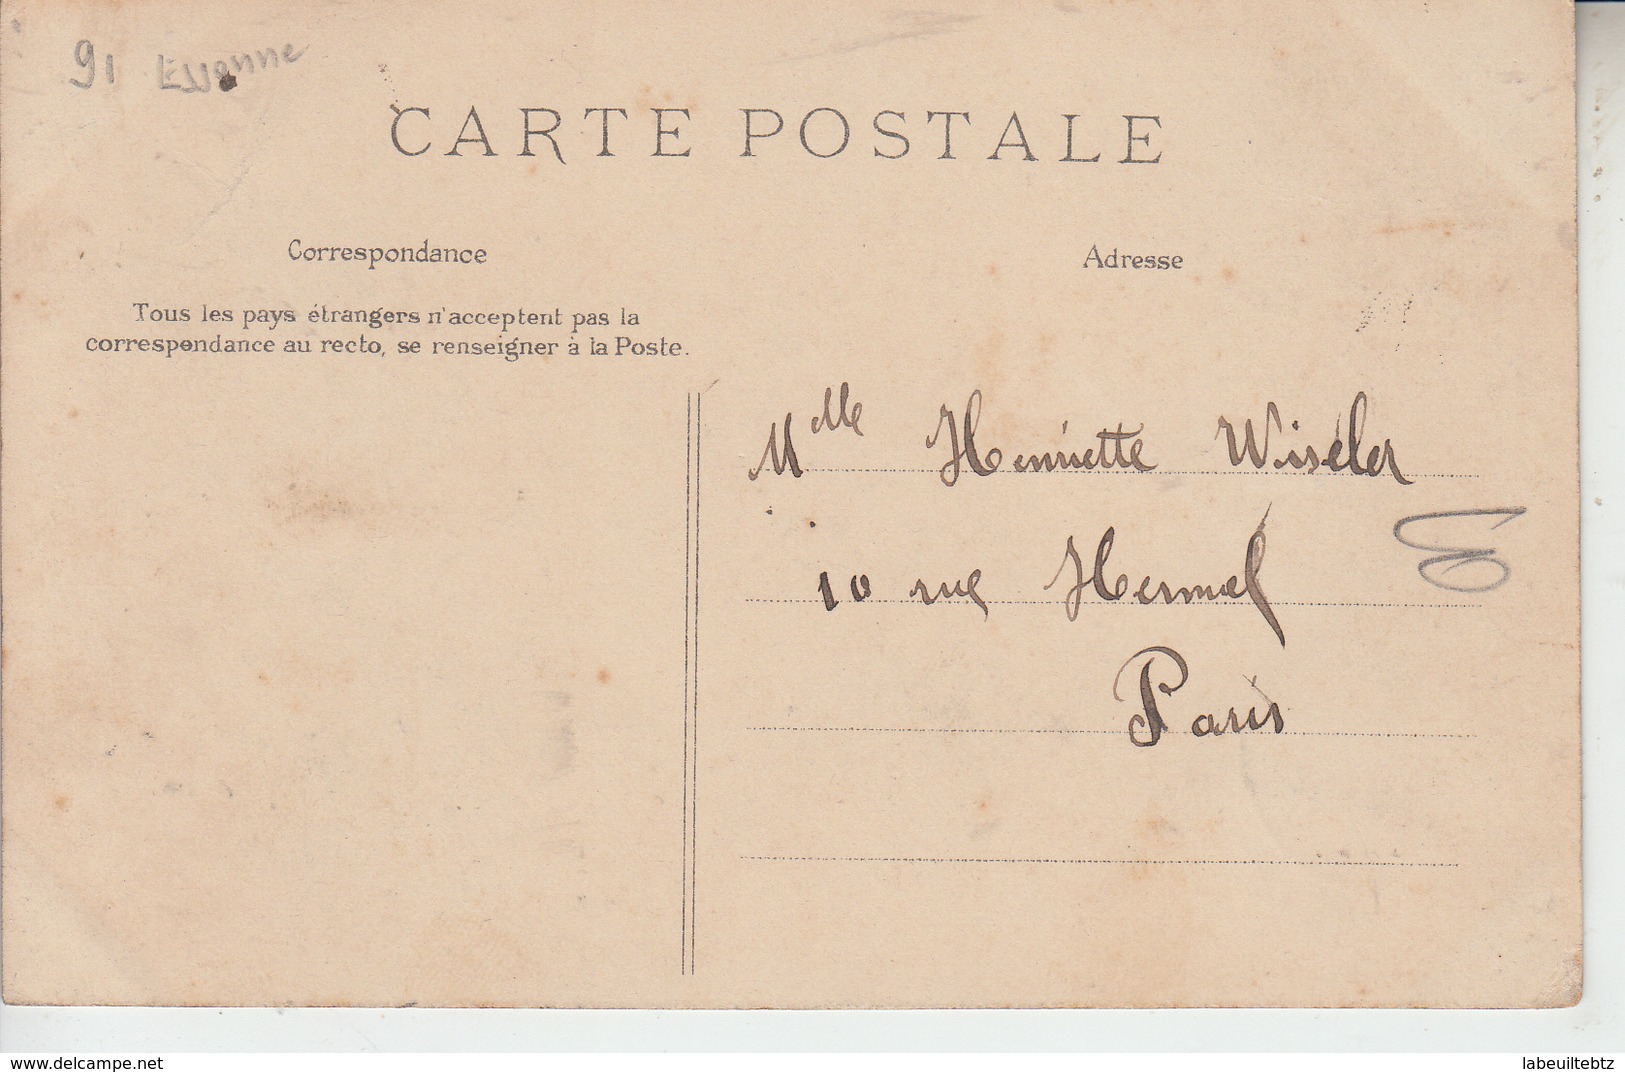 91 Essonne
CARTE POSTALE
Correspondance
Adresse
Tous les pays étrangers n'acceptent pas la
correspondance au recto, se renseigner à la Poste.
Mlle Henriette Wiseler
10 rue Hermel
Paris
www.delcampe.net
labeuiltebtz